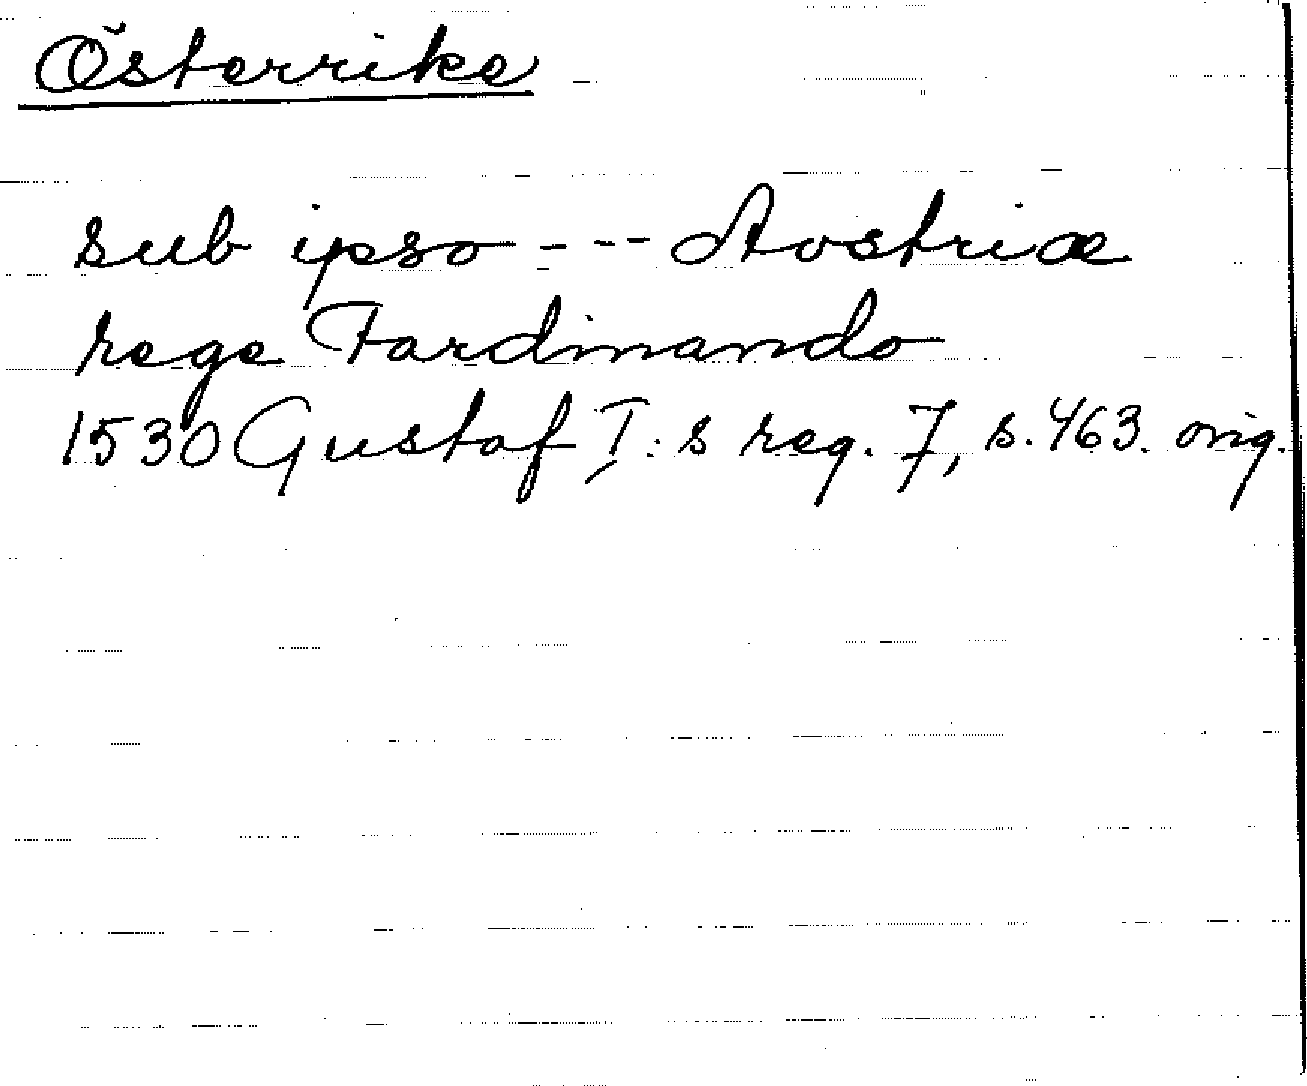 Österrike
sub ipso --- Avstriæ
rege Ferdinando
1530 Gustaf I:s reg. 7, s. 463. orig.